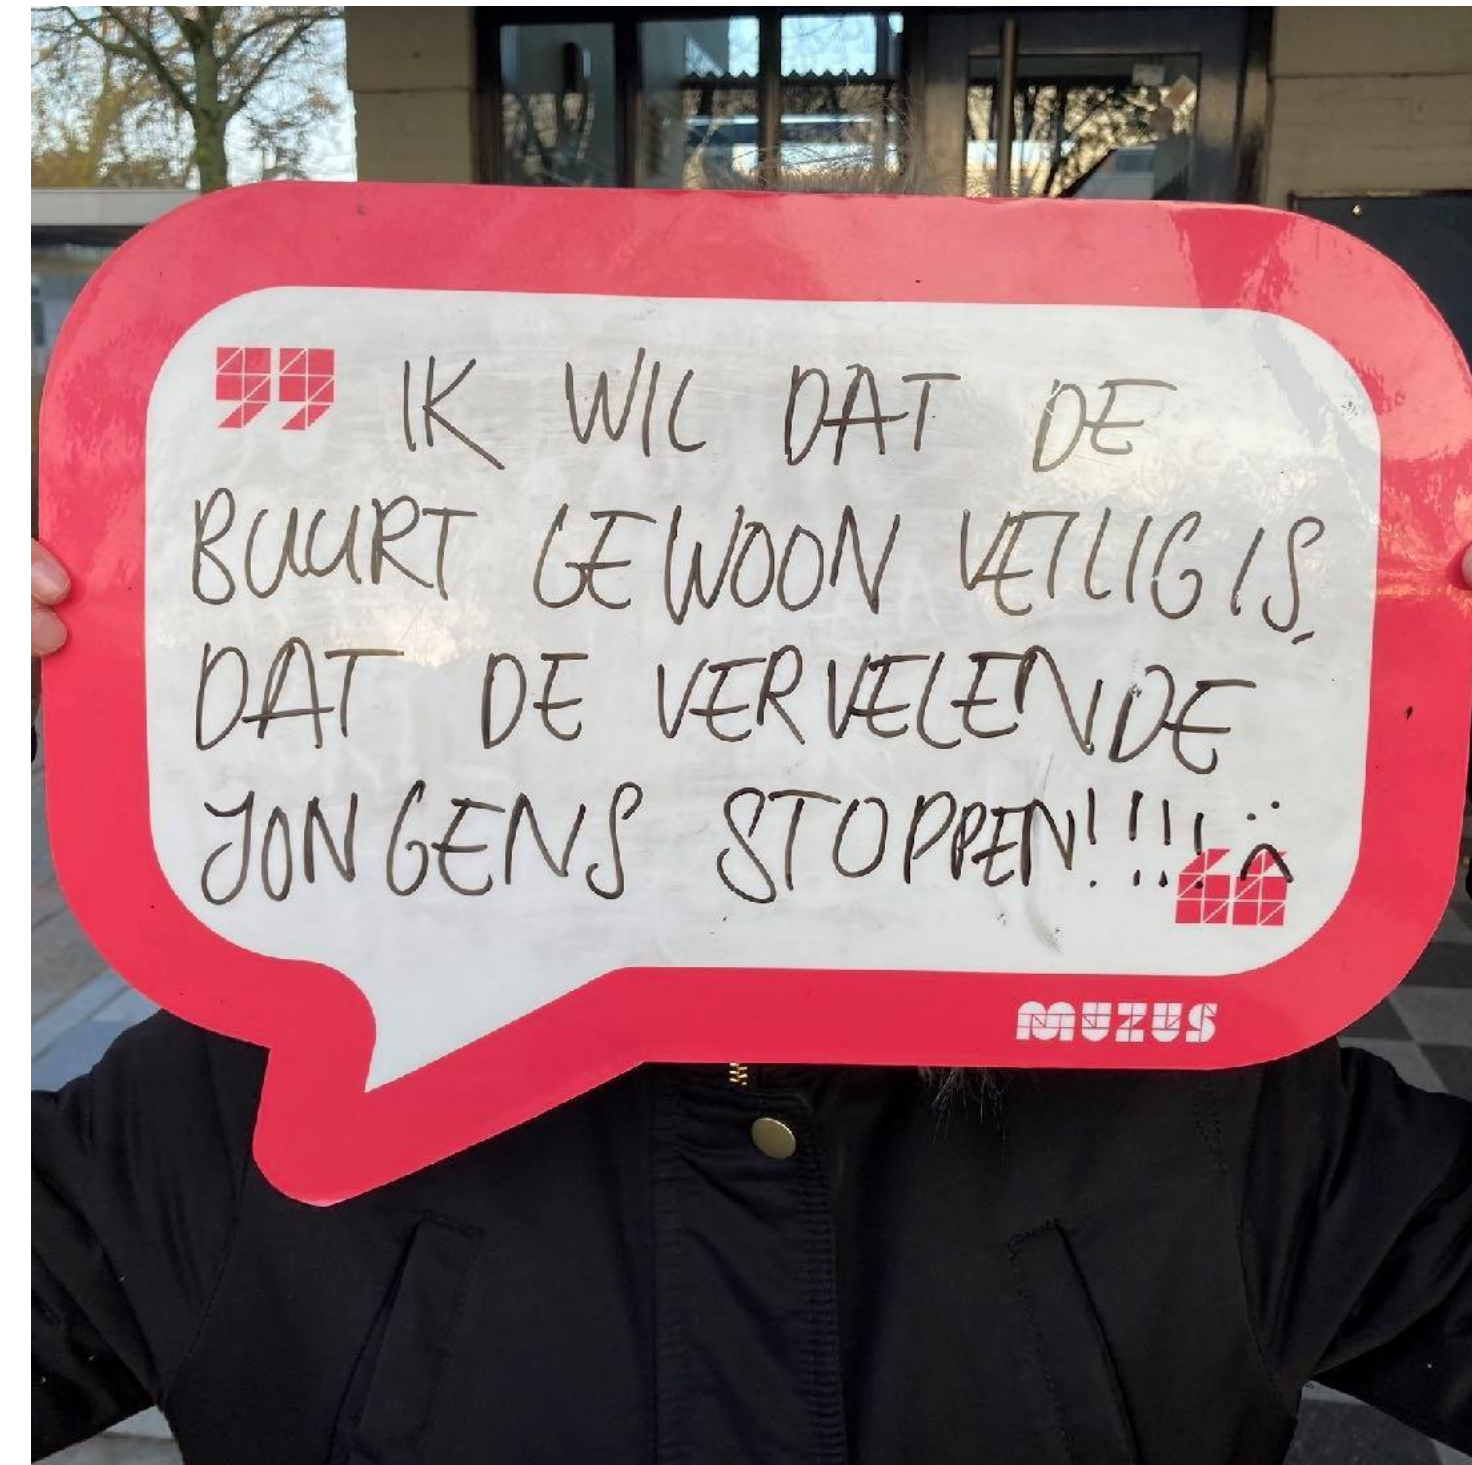 IK WIL DAT DE
BUURT GEWOON VEILIG IS,
DAT DE VERVELENDE
JONGENS STOPPEN!!!! :(
MUZUS